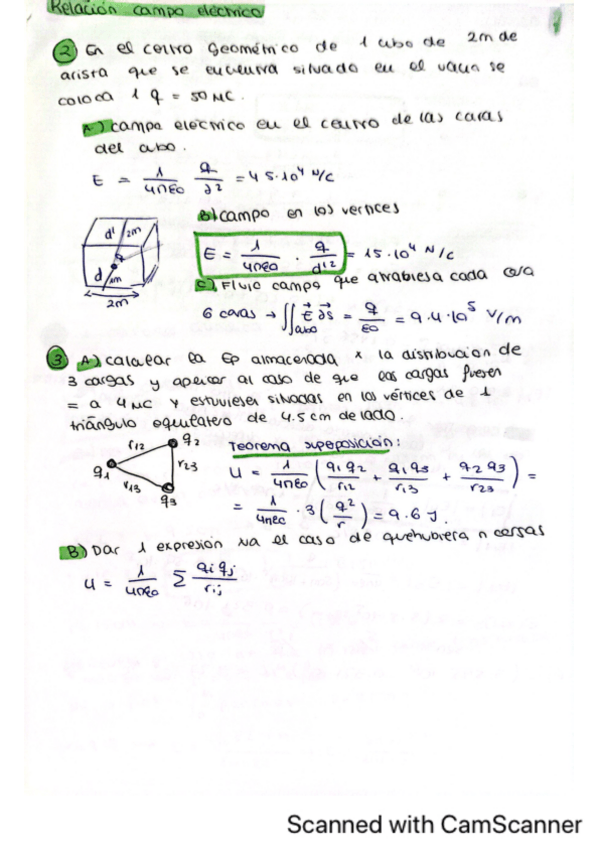 Relación campo eléctrico
2 En el centro geométrico de 1 cubo de 2m de
arista que se encuentra situado en el vacio se
coloca 1 q = 50 μC.
A) campo eléctrico en el centro de las caras
del cubo.
E = 1/4πε0 q/d² = 45·10⁴ N/C
B) campo en los vertices
d' 2m
q
d 1m
2m
E = 1/4πε0 · q/d'² = 15·10⁴ N/C
C) Flujo campo que atrabiesa cada cara
6 caras → ∬cubo E⃗ dS⃗ = q/ε0 = 9.4·10⁵ V/m
3 A) calcular la Ep almacenada x la distribución de
3 cargas y aplicar al caso de que las cargas fuesen
= a 4 μC y estuviesen situadas en los vértices de 1
triángulo equilatero de 4.5 cm de lado.
r12 q2
q1 r23
r13 q3
Teorema superposición:
U = 1/4πε0 (q1q2/r12 + q1q3/r13 + q2q3/r23) =
= 1/4πε0 · 3(q²/r) = 9.6 J.
B) Dar 1 expresión para el caso de que hubiera n cargas
U = 1/4πε0 Σ qi qj/rij
Scanned with CamScanner